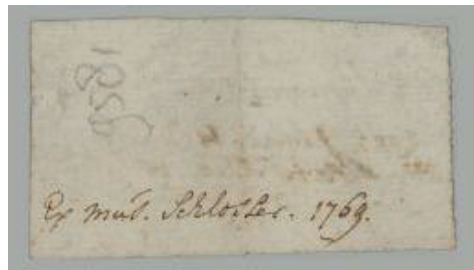 1858
Ex mus. Schlosser. 1769.